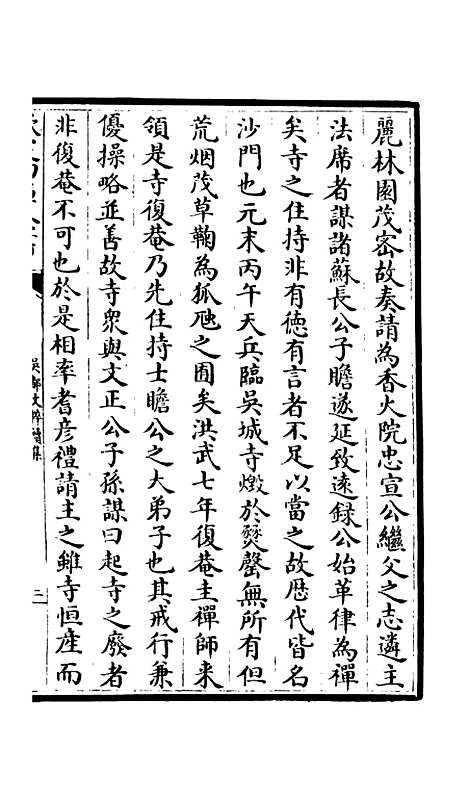 麗林園茂密故奏請為香火院忠宣公繼父之志遴主
法席者謀諸蘇長公子瞻遂延致遠録公始革律為禪
矣寺之住持非有徳有言者不足以當之故歴代皆名
沙門也元末丙午天兵臨吴城寺燬於爕罄無所有但
荒烟茂草鞠為狐虺之囿矣洪武七年復菴圭禪師来
領是寺復菴乃先住持士瞻公之大弟子也其戒行兼
優操略並善故寺衆與文正公子孫謀曰起寺之廢者
非復菴不可也於是相率耆彦禮請主之雖寺恒産而
吳都文粹續集